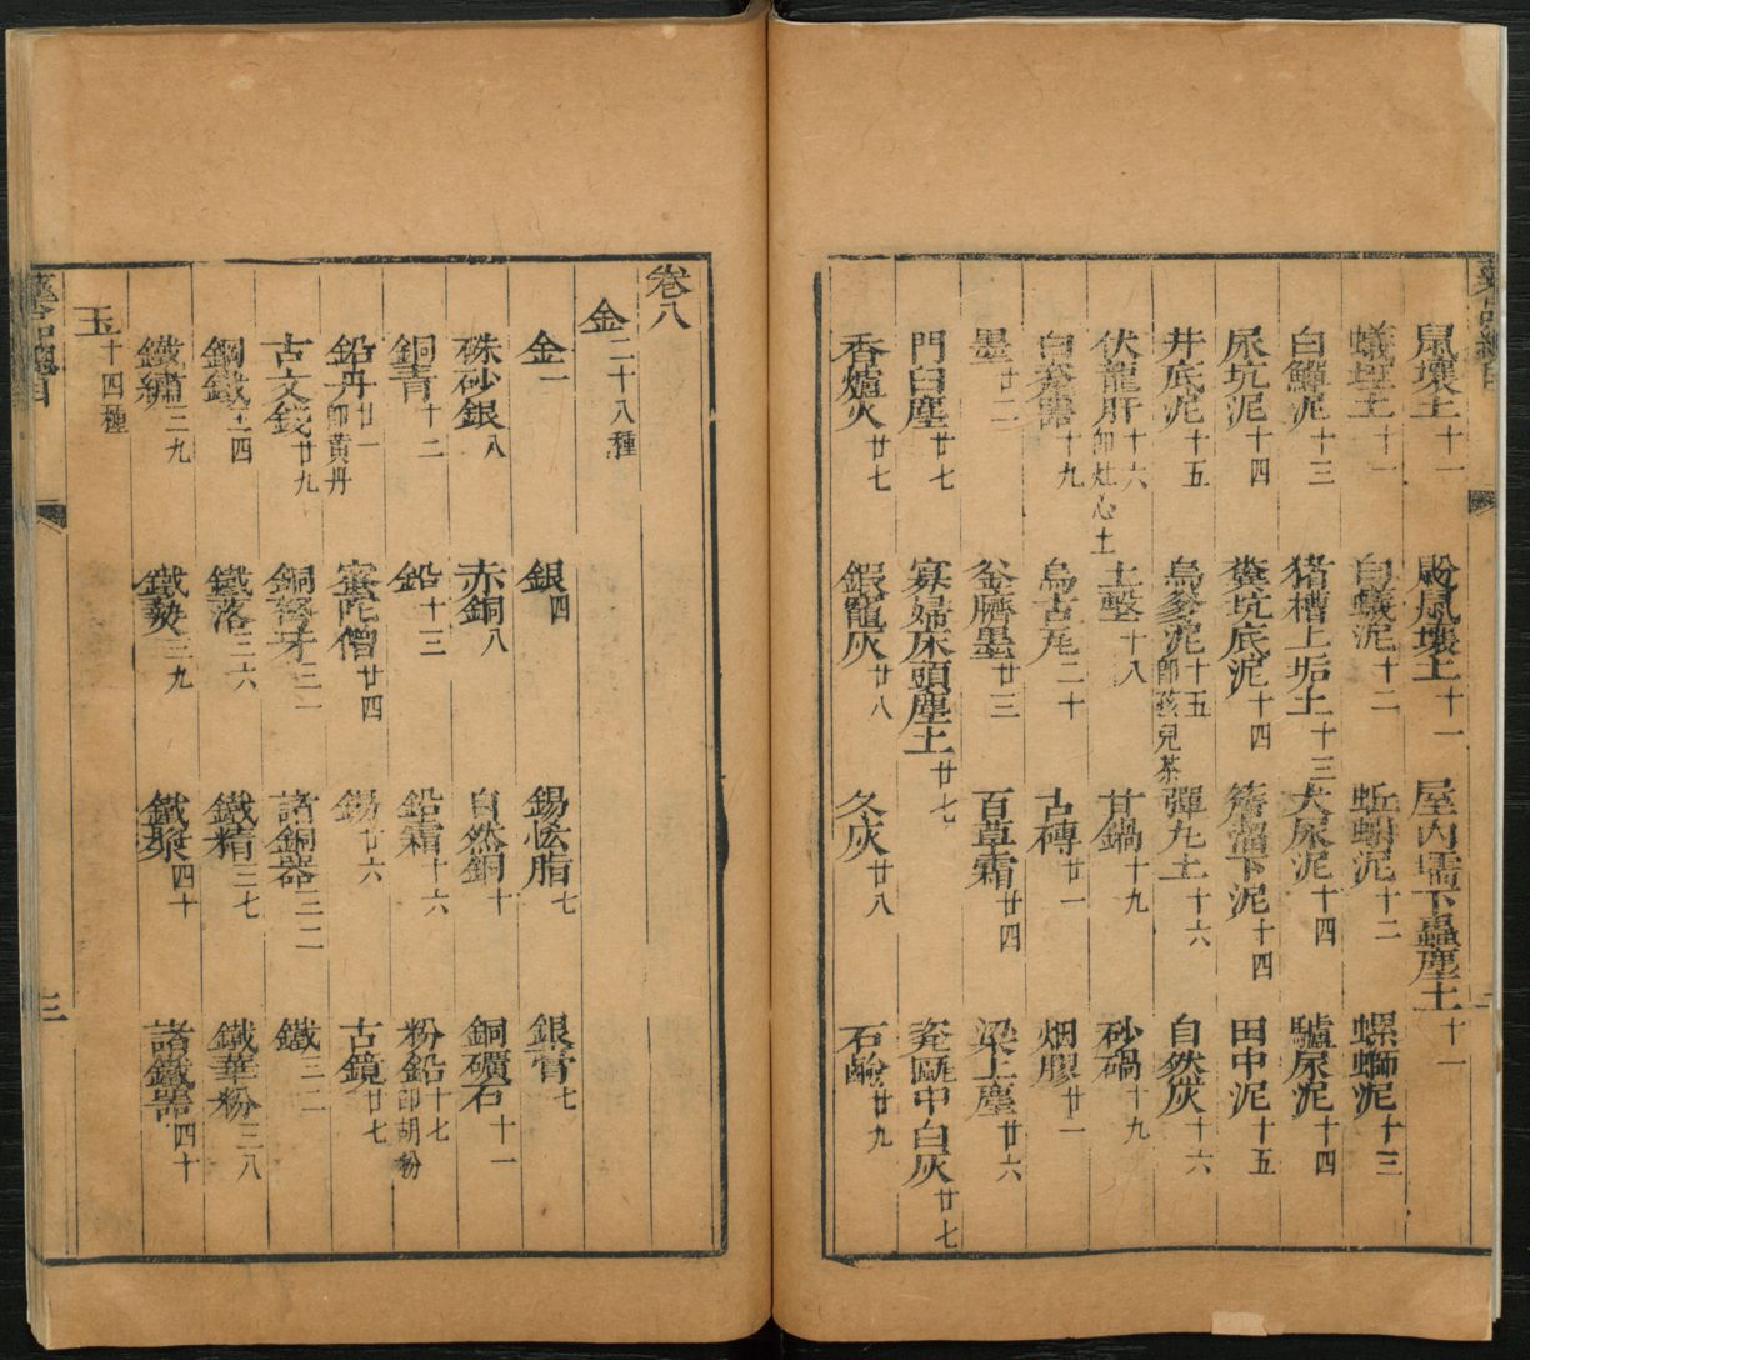 鼠壤土十一　鼢鼠壤土十一　屋内壖下蟲塵土十一
蟻垤土十一　白蟻泥十二　蚯蚓泥十二　螺螄泥十三
白鱓泥十三　猪槽上垢土十三　犬尿泥十四　驢尿泥十四
尿坑泥十四　糞坑底泥十四　簷溜下泥十四　田中泥十五
井底泥十五　烏爹泥十五即孩兒茶　彈丸土十六　自然灰十六
伏龍肝十六即灶心土　土墼十八　甘鍋十九　砂鍋十九
白瓷器十九　烏古瓦二十　古磚廿一　烟膠廿一
墨廿二　釜臍墨廿三　百草霜廿四　梁上塵廿六
門臼塵廿七　寡婦床頭塵土廿七　瓷甌中白灰廿七
香爐灰廿七　鍛竈灰廿八　冬灰廿八　石鹼廿九
卷八
金二十八種
金一　銀四　錫恡脂七　銀膏七
硃砂銀八　赤銅八　自然銅十　銅礦石十一
銅青十二　鉛十三　鉛霜十六　粉鉛十七即胡粉
鉛丹廿一即黄丹　密陀僧廿四　錫廿六　古鏡廿七
古文錢廿九　銅弩牙三一　諸銅器三二　鐵三二
鋼鐵三四　鐵落三六　鐵精三七　鐵華粉三八
鐵繡三九　鐵爇三九　鐵漿四十　諸鐵器四十
玉十四種
三